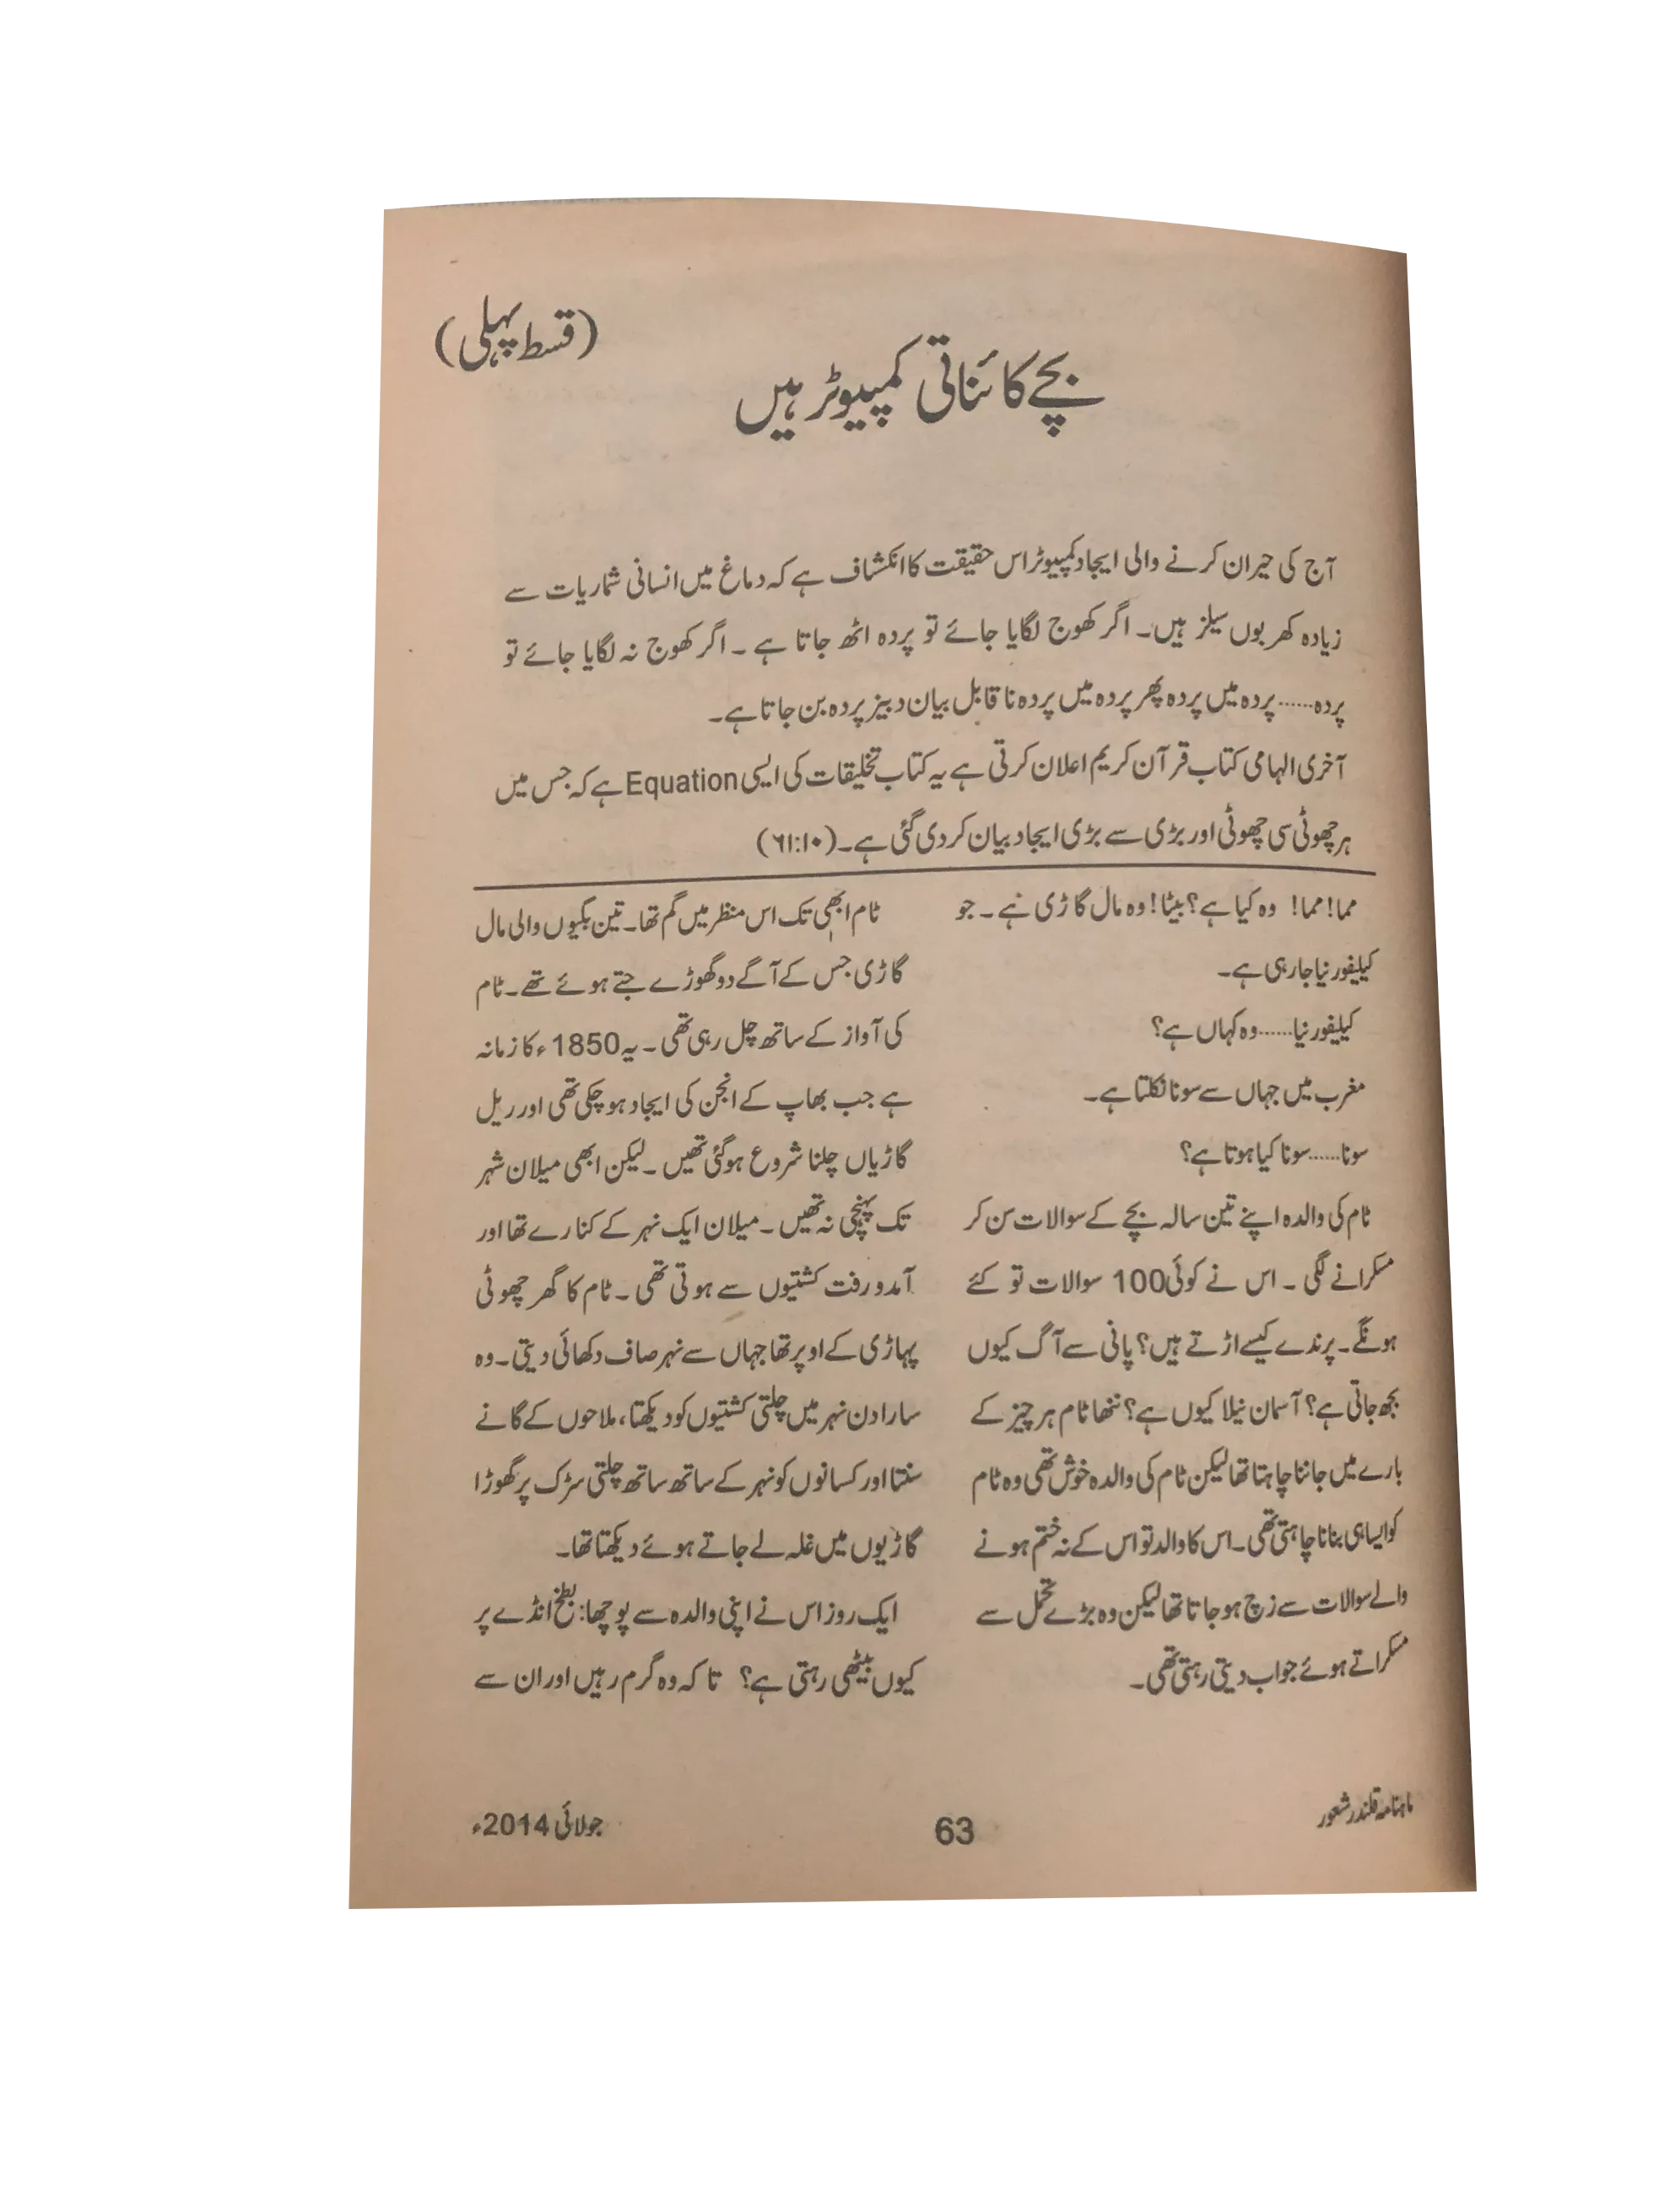 (قسط پہلی)
بچے کائناتی کمپیوٹر ہیں
آج کی حیران کرنے والی ایجاد کمپیوٹر اس حقیقت کا انکشاف ہے کہ دماغ میں انسانی شماریات سے
زیادہ کھربوں سیلز ہیں۔ اگر کھوج لگایا جائے تو پردہ اٹھ جاتا ہے ۔ اگر کھوج نہ لگایا جائے تو
پردہ...... پردہ میں پردہ پھر پردہ میں پردہ ناقابل بیان دبیز پردہ بن جاتا ہے۔
آخری الہامی کتاب قرآن کریم اعلان کرتی ہے یہ کتاب تخلیقات کی ایسی Equation ہے کہ جس میں
ہر چھوٹی سی چھوٹی اور بڑی سے بڑی ایجاد بیان کر دی گئی ہے۔ (۶۱:۱۰)
مما! مما! وہ کیا ہے؟ بیٹا! وہ مال گاڑی ہے ۔ جو
کیلیفورنیا جا رہی ہے۔
کیلیفورنیا...... وہ کہاں ہے؟
مغرب میں جہاں سے سونا نکلتا ہے۔
سونا...... سونا کیا ہوتا ہے؟
ٹام کی والدہ اپنے تین سالہ بچے کے سوالات سن کر
مسکرانے لگی ۔ اس نے کوئی 100 سوالات تو کئے
ہونگے۔ پرندے کیسے اڑتے ہیں؟ پانی سے آگ کیوں
بجھ جاتی ہے؟ آسمان نیلا کیوں ہے؟ ننھا ٹام ہر چیز کے
بارے میں جاننا چاہتا تھا لیکن ٹام کی والدہ خوش تھی وہ ٹام
کو ایسا ہی بنانا چاہتی تھی۔ اس کا والد تو اس کے نہ ختم ہونے
والے سوالات سے زچ ہو جاتا تھا لیکن وہ بڑے تحمل سے
مسکراتے ہوئے جواب دیتی رہتی تھی۔
ٹام ابھی تک اس منظر میں گم تھا۔ تین بگیوں والی مال
گاڑی جس کے آگے دو گھوڑے جتے ہوئے تھے۔ ٹام
کی آواز کے ساتھ چل رہی تھی ۔ یہ 1850ء کا زمانہ
ہے جب بھاپ کے انجن کی ایجاد ہو چکی تھی اور ریل
گاڑیاں چلنا شروع ہوگئی تھیں ۔ لیکن ابھی میلان شہر
تک پہنچی نہ تھیں ۔ میلان ایک نہر کے کنارے تھا اور
آمدورفت کشتیوں سے ہوتی تھی ۔ ٹام کا گھر چھوٹی
پہاڑی کے اوپر تھا جہاں سے نہر صاف دکھائی دیتی۔ وہ
سارا دن نہر میں چلتی کشتیوں کو دیکھتا، ملاحوں کے گانے
سنتا اور کسانوں کو نہر کے ساتھ ساتھ چلتی سڑک پر گھوڑا
گاڑیوں میں غلہ لے جاتے ہوئے دیکھتا تھا۔
ایک روز اس نے اپنی والدہ سے پوچھا: بطخ انڈے پر
کیوں بیٹھی رہتی ہے؟ تاکہ وہ گرم رہیں اور ان سے
ماہنامہ قلندر شعور
63
جولائی 2014ء